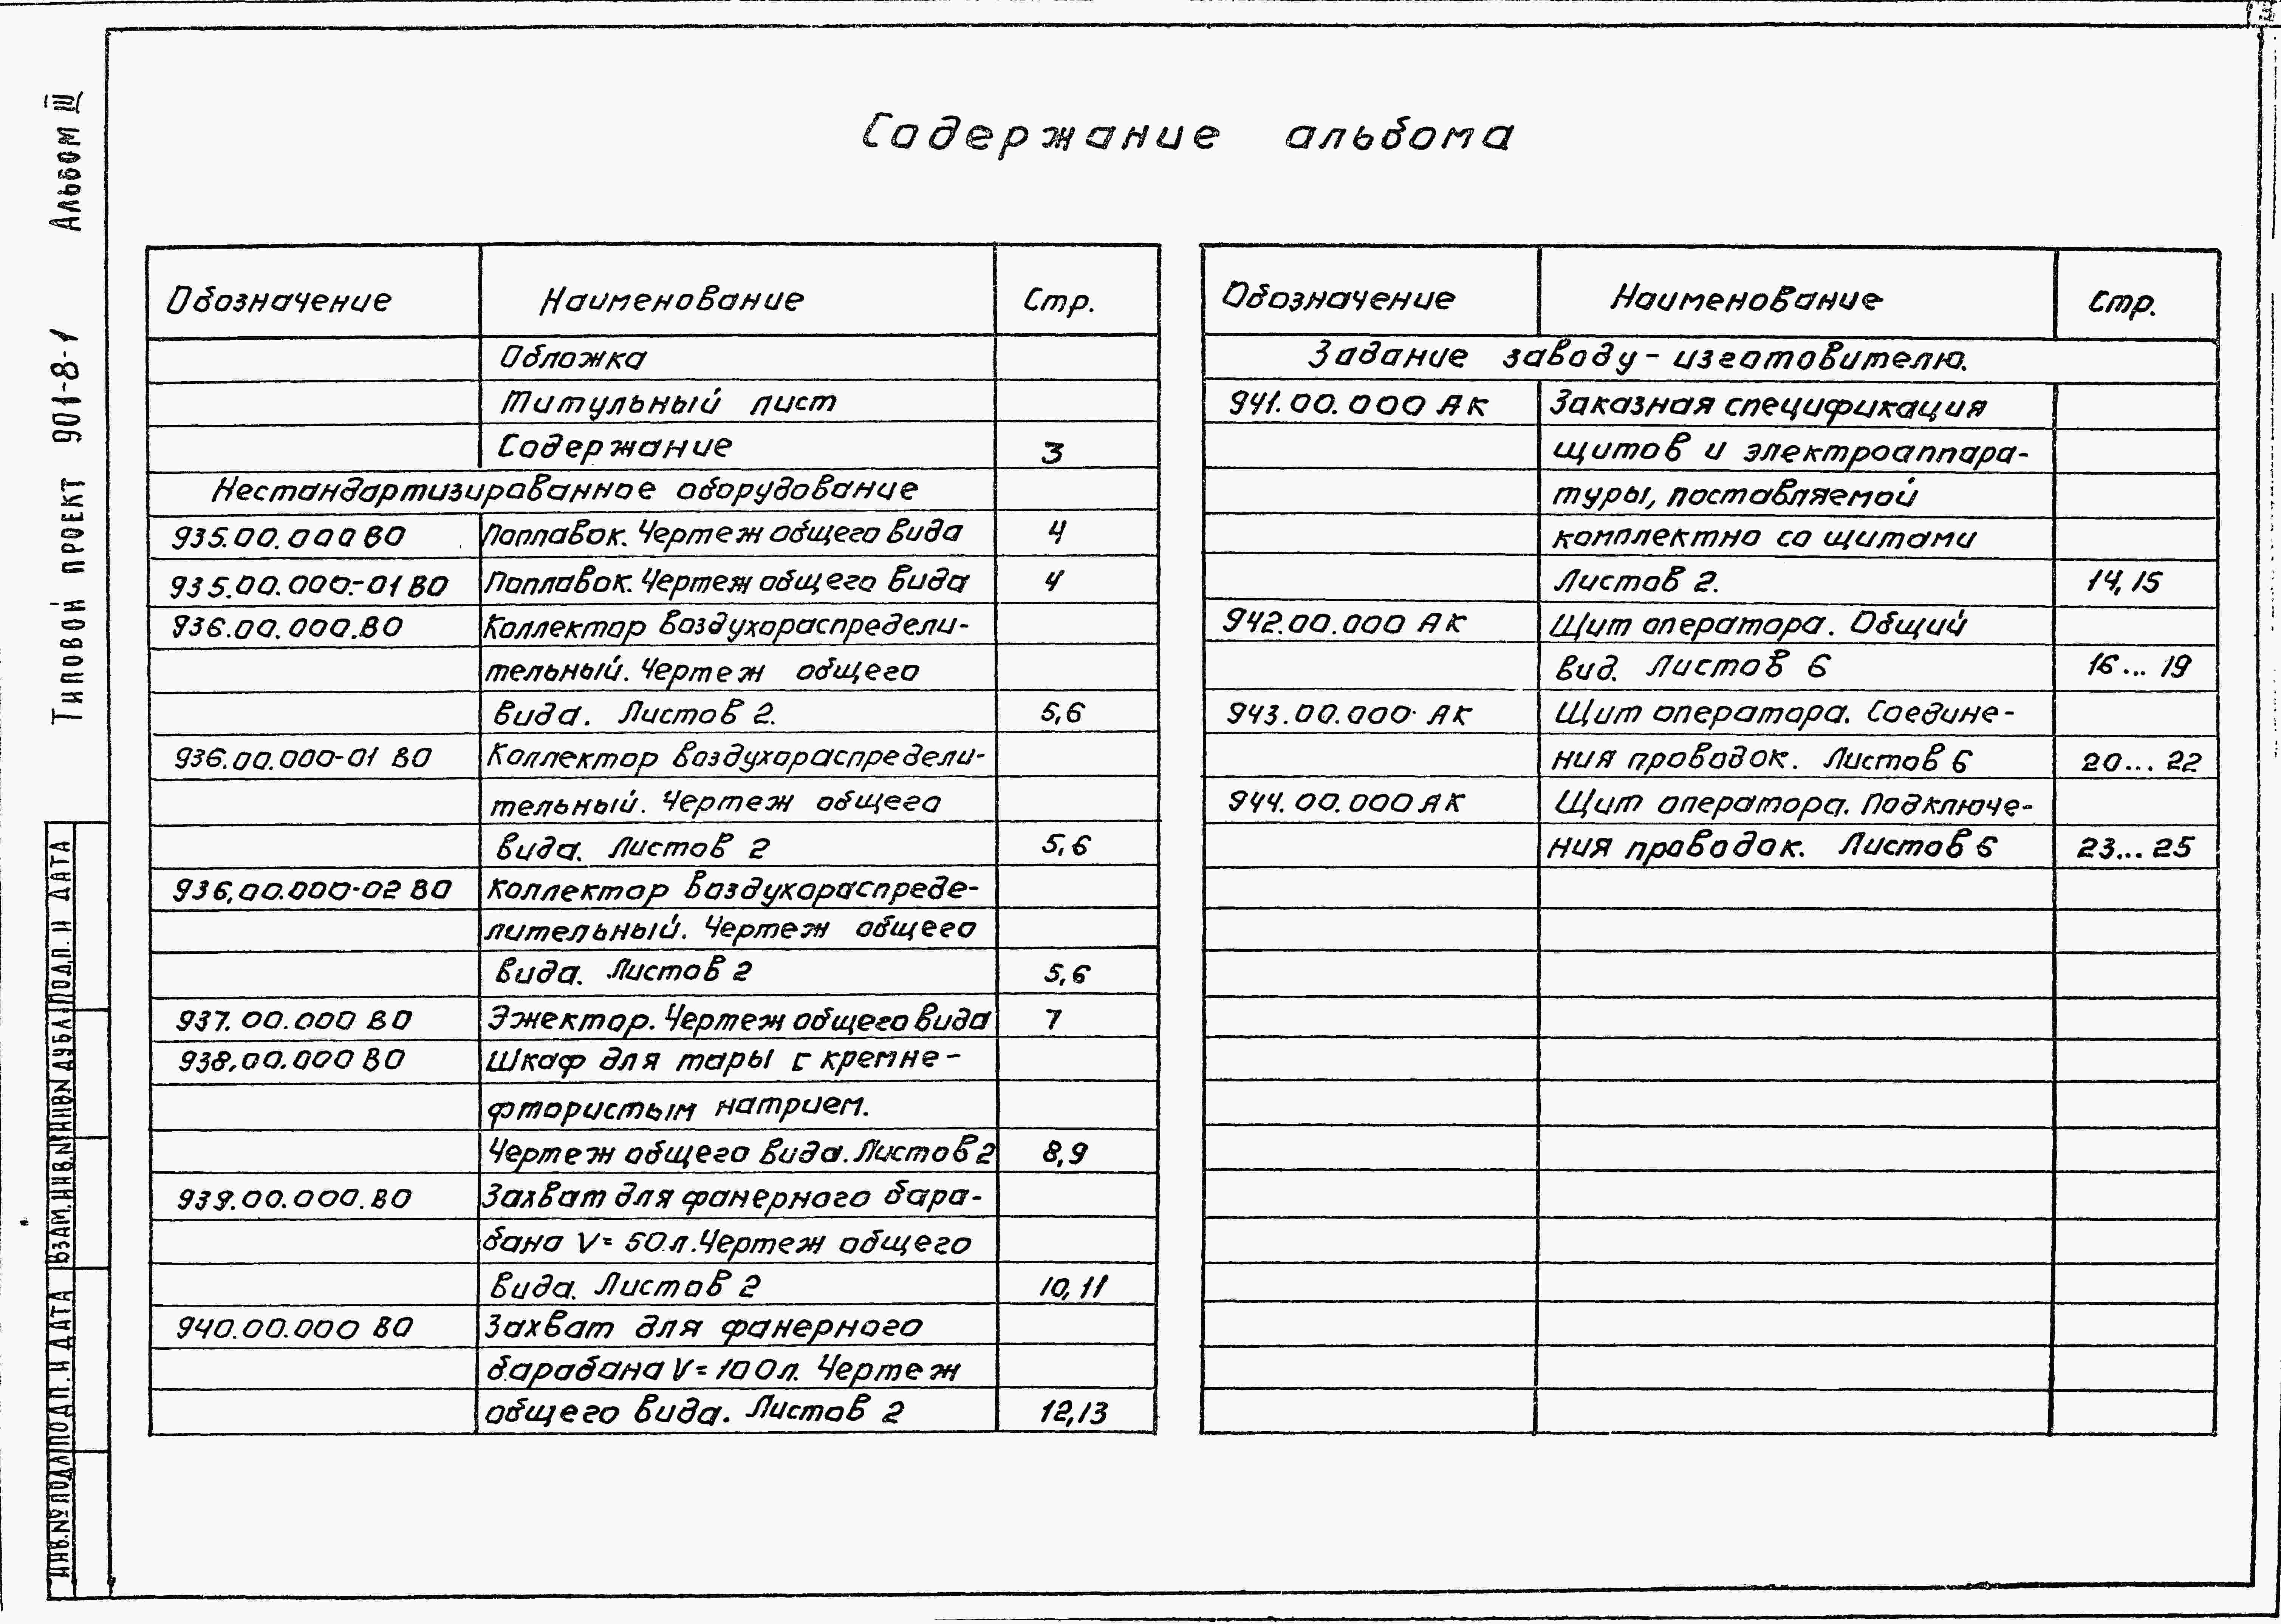 Альбом III
Типовой проект 901-8-1
Содержание альбома
Обозначение Наименование Стр.
Обложка
Титульный лист
Содержание 3
Нестандартизированное оборудование
935.00.000 ВО Поплавок. Чертеж общего вида 4
935.00.000-01 ВО Поплавок. Чертеж общего вида 4
936.00.000.ВО Коллектор воздухораспредели-
тельный. Чертеж общего
вида. Листов 2. 5,6
936.00.000-01 ВО Коллектор воздухораспредели-
тельный. Чертеж общего
вида. Листов 2 5,6
936.00.000-02 ВО Коллектор воздухораспреде-
лительный. Чертеж общего
вида. Листов 2 5,6
937.00.000 ВО Эжектор. Чертеж общего вида 7
938.00.000 ВО Шкаф для тары с кремне-
фтористым натрием.
Чертеж общего вида. Листов 2 8,9
939.00.000.ВО Захват для фанерного бара-
бана V= 50л. Чертеж общего
вида. Листов 2 10,11
940.00.000 ВО Захват для фанерного
барабана V= 100л. Чертеж
общего вида. Листов 2 12,13
Обозначение Наименование Стр.
Задание заводу-изготовителю.
941.00.000 АК Заказная спецификация
щитов и электроаппара-
туры, поставляемой
комплектно со щитами
Листов 2. 14,15
942.00.000 АК Щит оператора. Общий
вид. Листов 6 16...19
943.00.000 АК Щит оператора. Соедине-
ния проводок. Листов 6 20...22
944.00.000 АК Щит оператора. Подключе-
ния проводок. Листов 6 23...25
ИНВ.№ПОДЛ ПОДП. И ДАТА ВЗАМ.ИНВ.№ ИНВ№ ДУБЛ ПОДП. И ДАТА